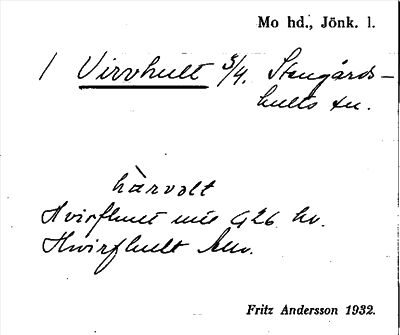 Mo hd., Jönk. l.
1 Virvhult 3/4. Stengårds-
hults sn.
härvolt
Hvirfhult 926 hv.
Hwirfhult
Fritz Andersson 1932.